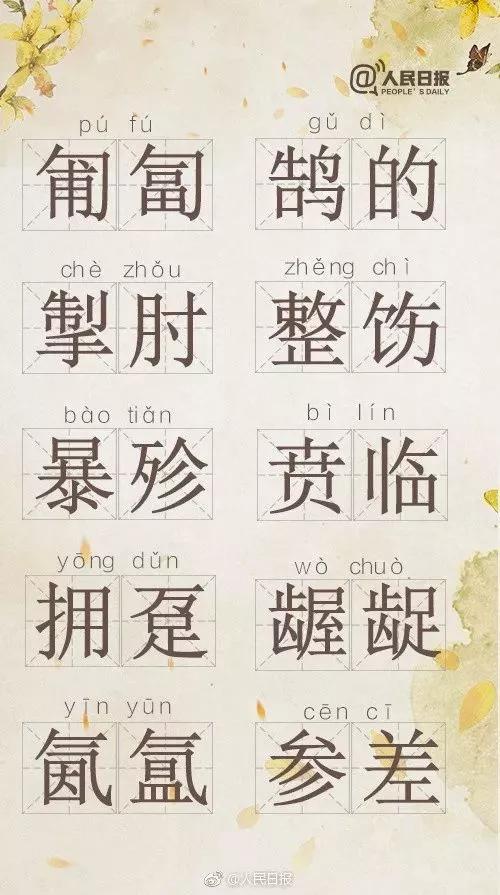 @人民日报
PEOPLE'S DAILY
pú fú gǔ dì
匍匐 鹄的
chè zhǒu zhěng chì
掣肘 整饬
bào tiǎn bì lín
暴殄 贲临
yōng dǔn wò chuò
拥趸 龌龊
yīn yūn cēn cī
氤氲 参差
@人民日报